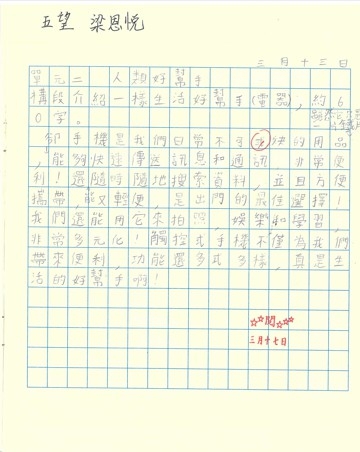 五望 梁恩悅
三月十三日
單元二 人類好幫手
構段介紹一樣生活好幫手(電器),約6
0字。
手機是我們日常不可 缺的用品
,能夠快速傳送訊息和通訊 非常便
利!還隨時隨地搜索資料,並且方便
攜帶,能又輕便,是出門的最佳選擇!
我們還能用它來拍照,娛樂和學習,
非常多元化!觸控式手機不僅為我們
帶來便利,功能還多式多樣,真是生
活的好幫手啊!
閱
三月十七日